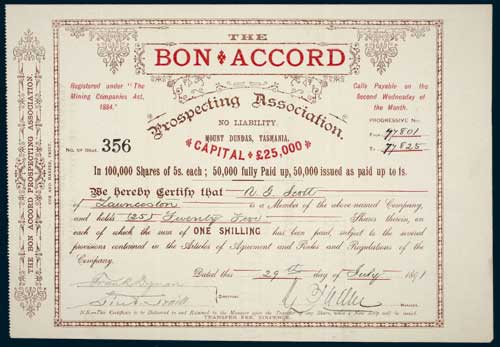 THE
BON ACCORD
Prospecting Association.
Registered under "The
Mining Companies Act,
1884."
Calls Payable on the
Second Wednesday of
the Month.
NO LIABILITY.
MOUNT DUNDAS, TASMANIA.
CAPITAL £25,000
PROGRESSIVE No
From 77801
To 77825
No. of Shat. 356
In 100,000 Shares of 5s. each; 50,000 fully Paid up, 50,000 issued as paid up to 1s.
We hereby Certify that A. G. Scott
of Launceston is a Member of the above named Company,
and holds (25) Twenty Five Shares therein, on
each of which the sum of ONE SHILLING has been paid, subject to the several
provisions contained in the Articles of Agreement and Rules and Regulations of the
Company.
Dated this 29th day of July 1891
DIRECTORS.
MANAGER.
N.B.—This Certificate is to be Delivered to and Retained by the Manager upon the Transfer of any Share, when a New Scrip will be issued.
TRANSFER FEE, SIXPENCE.
THE BON ACCORD PROSPECTING ASSOCIATION.